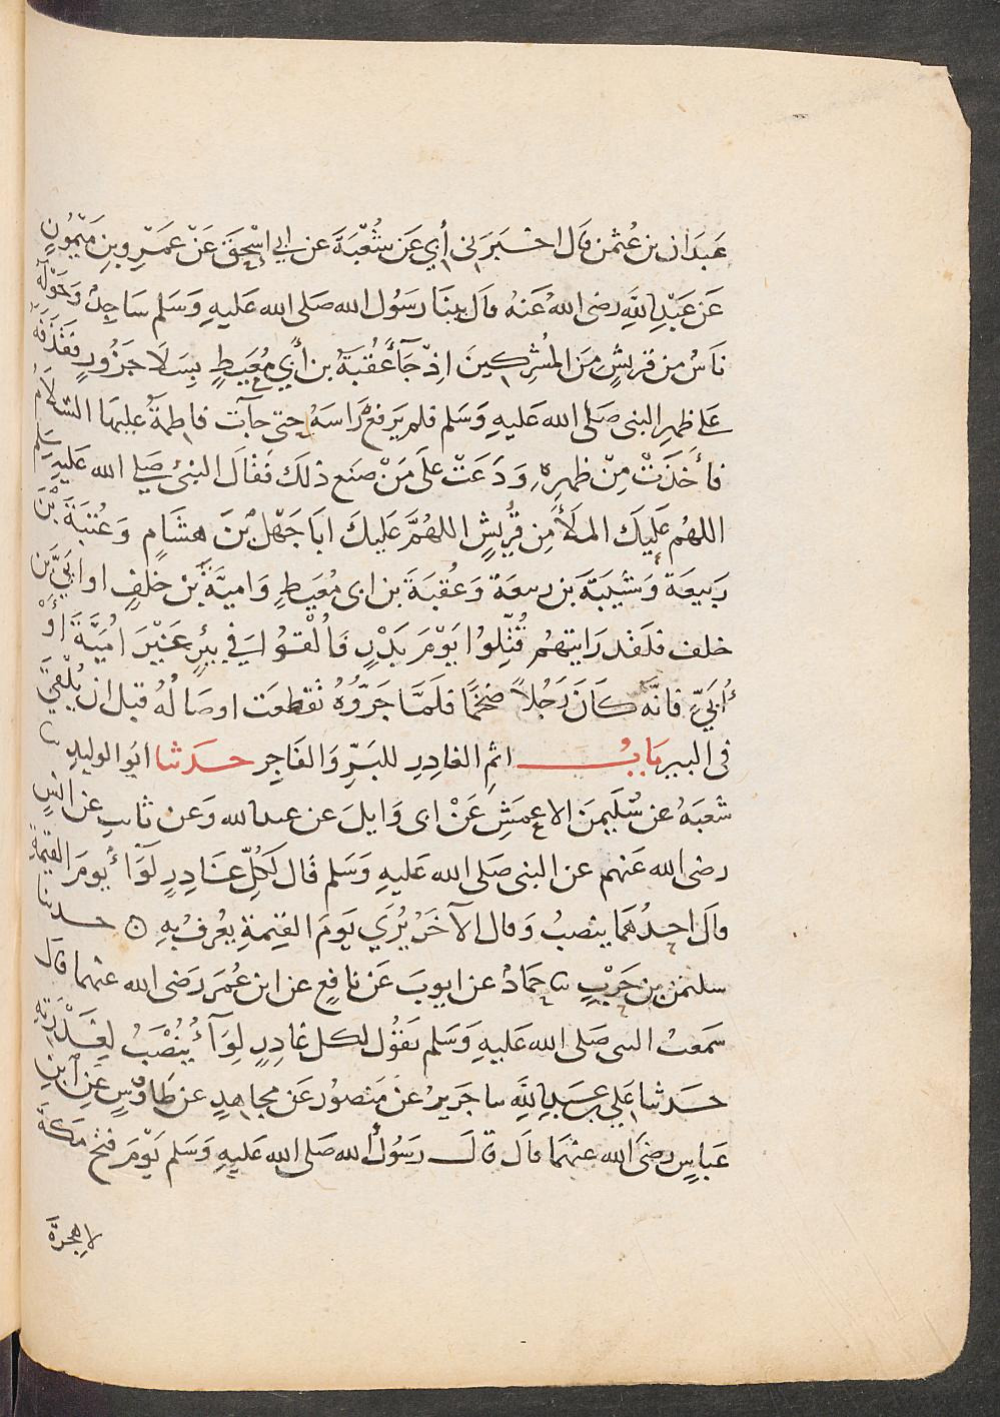 عَبدَان بن عُثمن قَال اخبَرَنى أبي عَن شُعْبَةَ عن ابي إسْحقَ عَنْ عَمَرِو بنِ مَيْمُونٍ
عَن عَبْدِ اللهِ رضى اللهُ عَنهُ قالَ بينَا رَسُول الله صَلى الله عَليهِ وَسَلم سَاجِدٌ وَحَوْلهُ
نَاسٌ من قريشٍ مِنَ المُشرِكِينَ اِذْ جَآءَ عُقبَةُ بن أبي مُعَيطٍ بِسَلَا جَزُورٍ فقَذَفَهُ
عَلى ظهرِ النبى صَلى الله عَليهِ وَسَلم فلم يَرفعْ رَاسَهُ حتى جآت فاطمةُ عليها السَّلَامُ
فأخَذَتْ مِنْ ظهرِهِ وَدَعَتْ عَلى مَنْ صَنع ذلكَ فقَالَ النبىُ صَلى الله عَليهِ وسَلم
اللهُم عَليكَ المَلَأَ مِن قُرُيشٍ اللهُمَّ عَليكَ ابَا جَهْلِ بْنَ هشَامٍ وَعُتبَةَ بْنَ
رَبيعَةَ وَشيبَةَ بَن ربيعَة وَعُقبَةَ بن ابى مُعَيطٍ وَاميَّةَ بْنَ خلفٍ او ابَيَّ بْن
خلف فلَقد رَايتهُم قُتِلوُا يَوْمَ بَدْرٍ فَاُلْقوُا في بِيْرٍ غَيْرَ اُمَيَّةَ اَوْ
اُبَيٍّ فانّهَ كَانَ رَجُلاً ضخمًا فلَمَّا جَرَّوُهُ تَقطعَت اوصَالُهُ قبل ان يُلْقىَ
فى البير بَابُ اثمِ الغَادِرِ للبَرِّ وَالفَاجِرِ حَدَثنا ابُو الوليدِ نا
شعْبَهُ عن سُلَيمَنَ الاعمَشِ عَنْ ابى وَايلَ عن عبد الله وَعن ثابتٍ عن انسٍ
رضى الله عَنهم عن النبى صَلى الله عَليهِ وَسَلم قال لكُلِّ غَادِرٍ لوَآءٌ يومَ القيمَةِ
قالَ احدُهُمَا ينصَبُ وَقال الآخَرُ يُرَي يَومَ القيمةِ يعْرفُ بهِ ن حدثنا
سليمن بن حَرْبٍ نا حَمادٌ عن ايوبَ عَن نافعٍ عن ابن عُمَر رَضى الله عنهما قال
سَمعتُ النبى صَلى الله عَليهِ وَسَلم يَقوُل لكل غادِرٍ لِوَآءٌ يُنْصَبُ لِغَدْرَتِهِ
حَدثنا عَلي بن عَبدِ اللهِ نا جَريرٌ عنْ مَنصوُر عَن مجَاهدٍ عن طاوُسٍ عَنِ ابنِ
عَباسٍ رضىَ الله عنهُمَا قالَ قالَ رَسُولُ الله صَلى الله عَليهِ وَسَلم يَوْمَ فتْح مَكةَ
لا هجرَةَ